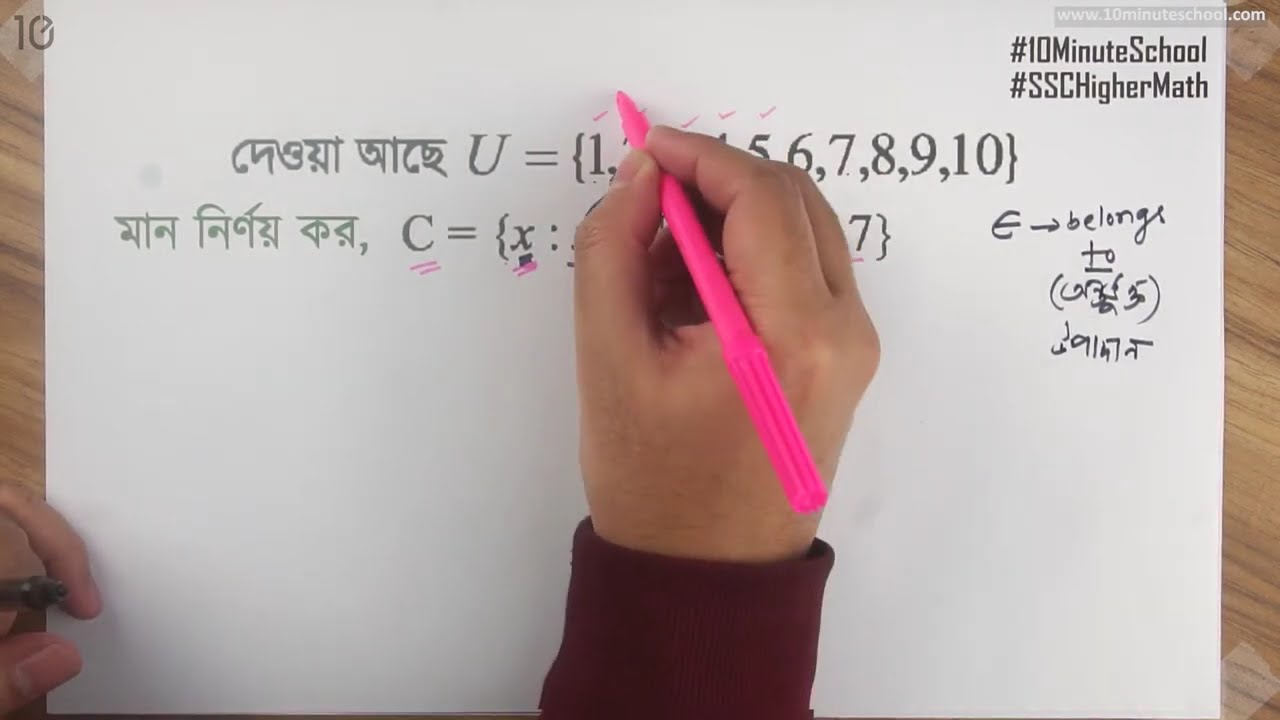 10
www.10minuteschool.com
#10MinuteSchool
#SSCHigherMath
দেওয়া আছে U = {1, 5,6,7,8,9,10}
মান নির্ণয় কর, C = {x : 7}
∈ → belongs
to
(অন্তর্ভুক্ত)
উপাদান